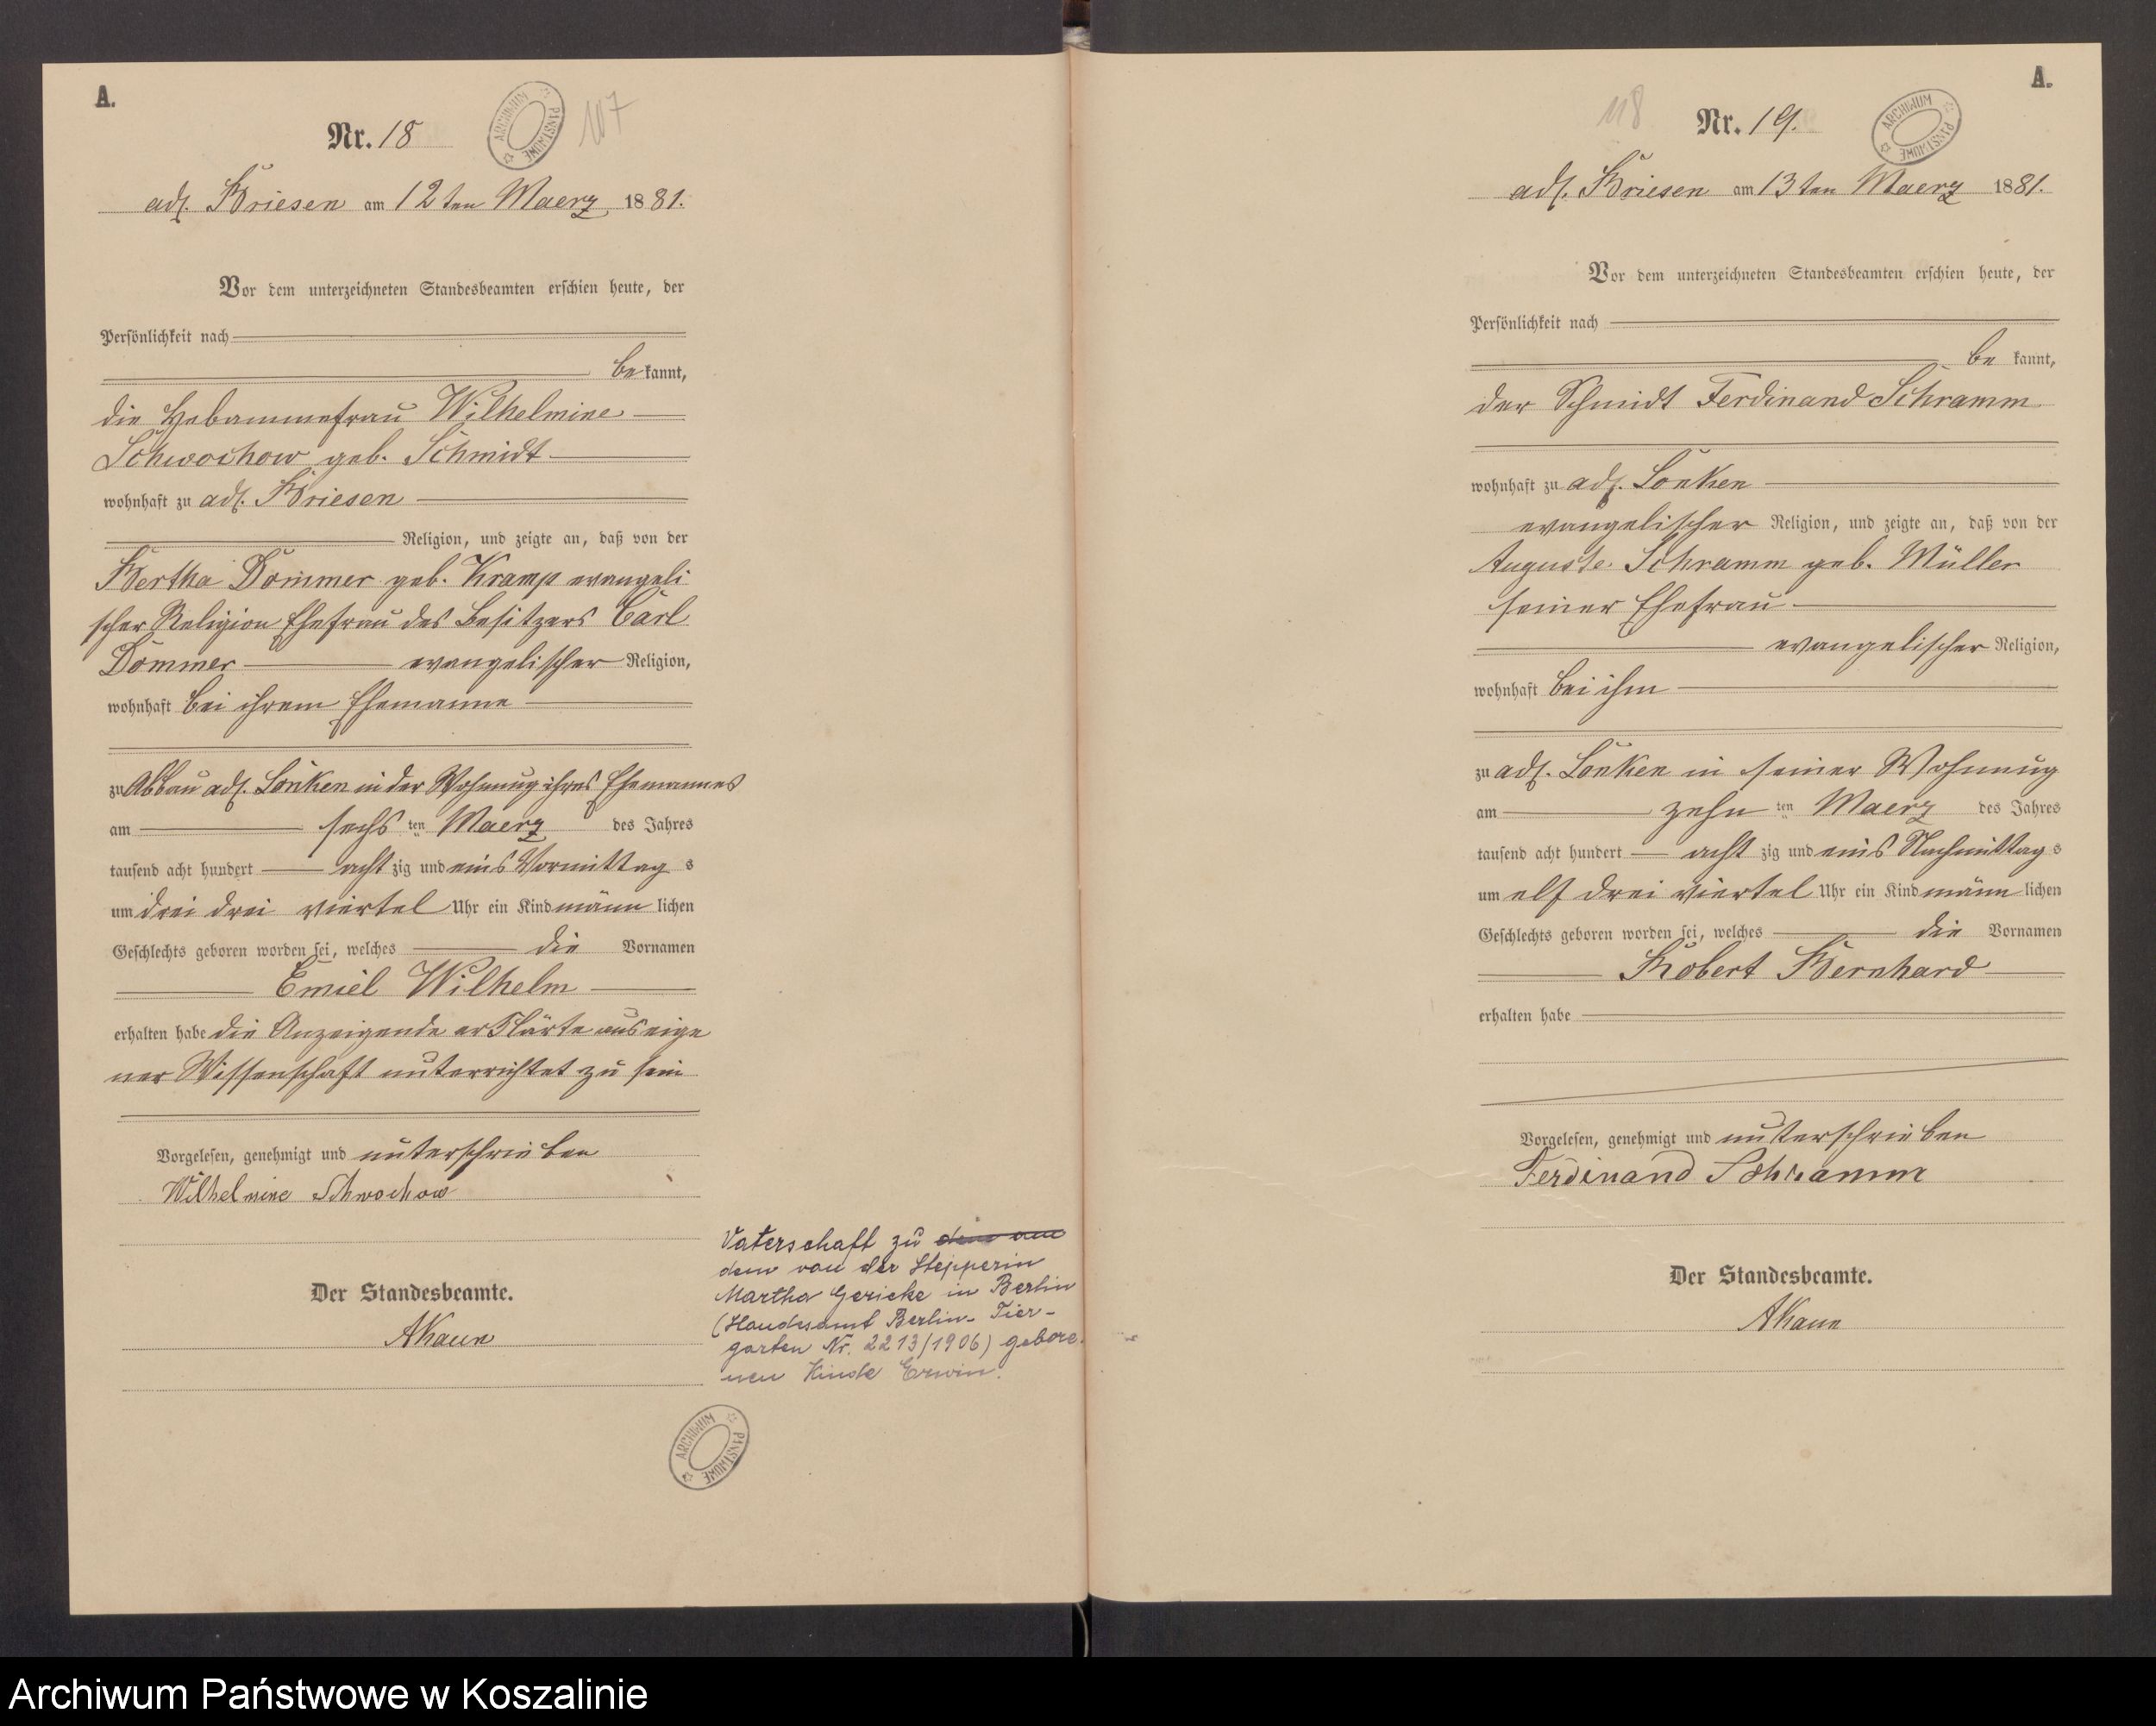 A.
Nr. 18
107
ARCHIWUM PAŃSTWOWE
adl. Briesen am 12 ten Maerz 1881.
Vor dem unterzeichneten Standesbeamten erschien heute, der
Persönlichkeit nach
be kannt,
die Hebammefrau Wilhelmine
Schwochow geb. Schmidt
wohnhaft zu adl. Briesen
Religion, und zeigte an, daß von der
Bertha Dommer geb. Kramp evangeli
scher Religion Ehefrau des Besitzers Carl
Dommer evangelischer Religion,
wohnhaft bei ihrem Ehemanne
zu Abbau adl. Lonken in der Wohnung ihres Ehemannes
am sechs ten Maerz des Jahres
tausend acht hundert acht zig und eins Vormittag s
um drei drei viertel Uhr ein Kind männ lichen
Geschlechts geboren worden sei, welches die Vornamen
Emiel Wilhelm
erhalten habe die Anzeigende erklärte aus eige
ner Wissenschaft unterrichtet zu sein
Vorgelesen, genehmigt und unterschrieben
Wilhelmine Schwochow
Der Standesbeamte.
AKaun
Vaterschaft zu dem am
dem von der Stepperin
Martha Gericke in Berlin
(Standesamt Berlin-Tier-
garten Nr. 2213/1906) gebore-
nen Kinde Erwin.
ARCHIWUM PAŃSTWOWE
A.
118
Nr. 19.
ARCHIWUM PAŃSTWOWE
adl. Briesen am 13 ten Maerz 1881.
Vor dem unterzeichneten Standesbeamten erschien heute, der
Persönlichkeit nach
be kannt,
der Schmidt Ferdinand Schramm
wohnhaft zu adl. Lonken
evangelischer Religion, und zeigte an, daß von der
Auguste Schramm geb. Müller
seiner Ehefrau
evangelischer Religion,
wohnhaft bei ihm
zu adl. Lonken in seiner Wohnung
am zehn ten Maerz des Jahres
tausend acht hundert acht zig und eins Nachmittag s
um elf drei viertel Uhr ein Kind männ lichen
Geschlechts geboren worden sei, welches die Vornamen
Robert Bernhard
erhalten habe
Vorgelesen, genehmigt und unterschrieben
Ferdinand Schramm
Der Standesbeamte.
AKaun
Archiwum Państwowe w Koszalinie